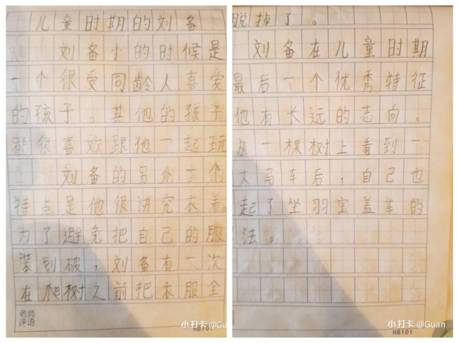 儿童时期的刘备
刘备小的时候是
一个很受同龄人喜爱
的孩子。其他的孩子
都很喜欢跟他一起玩
刘备的另外一个
特点是他很讲究衣着。
为了避免把自己的服
装划破，刘备有一次
在爬树之前把衣服全
老师
评语
小打卡@Guan
脱掉了。
刘备在儿童时期
最后一个优秀特征
他有长远的志向。
一棵树上看到一
大马车后，自己也
起了坐羽宝盖车的
法。
小打卡@Guan